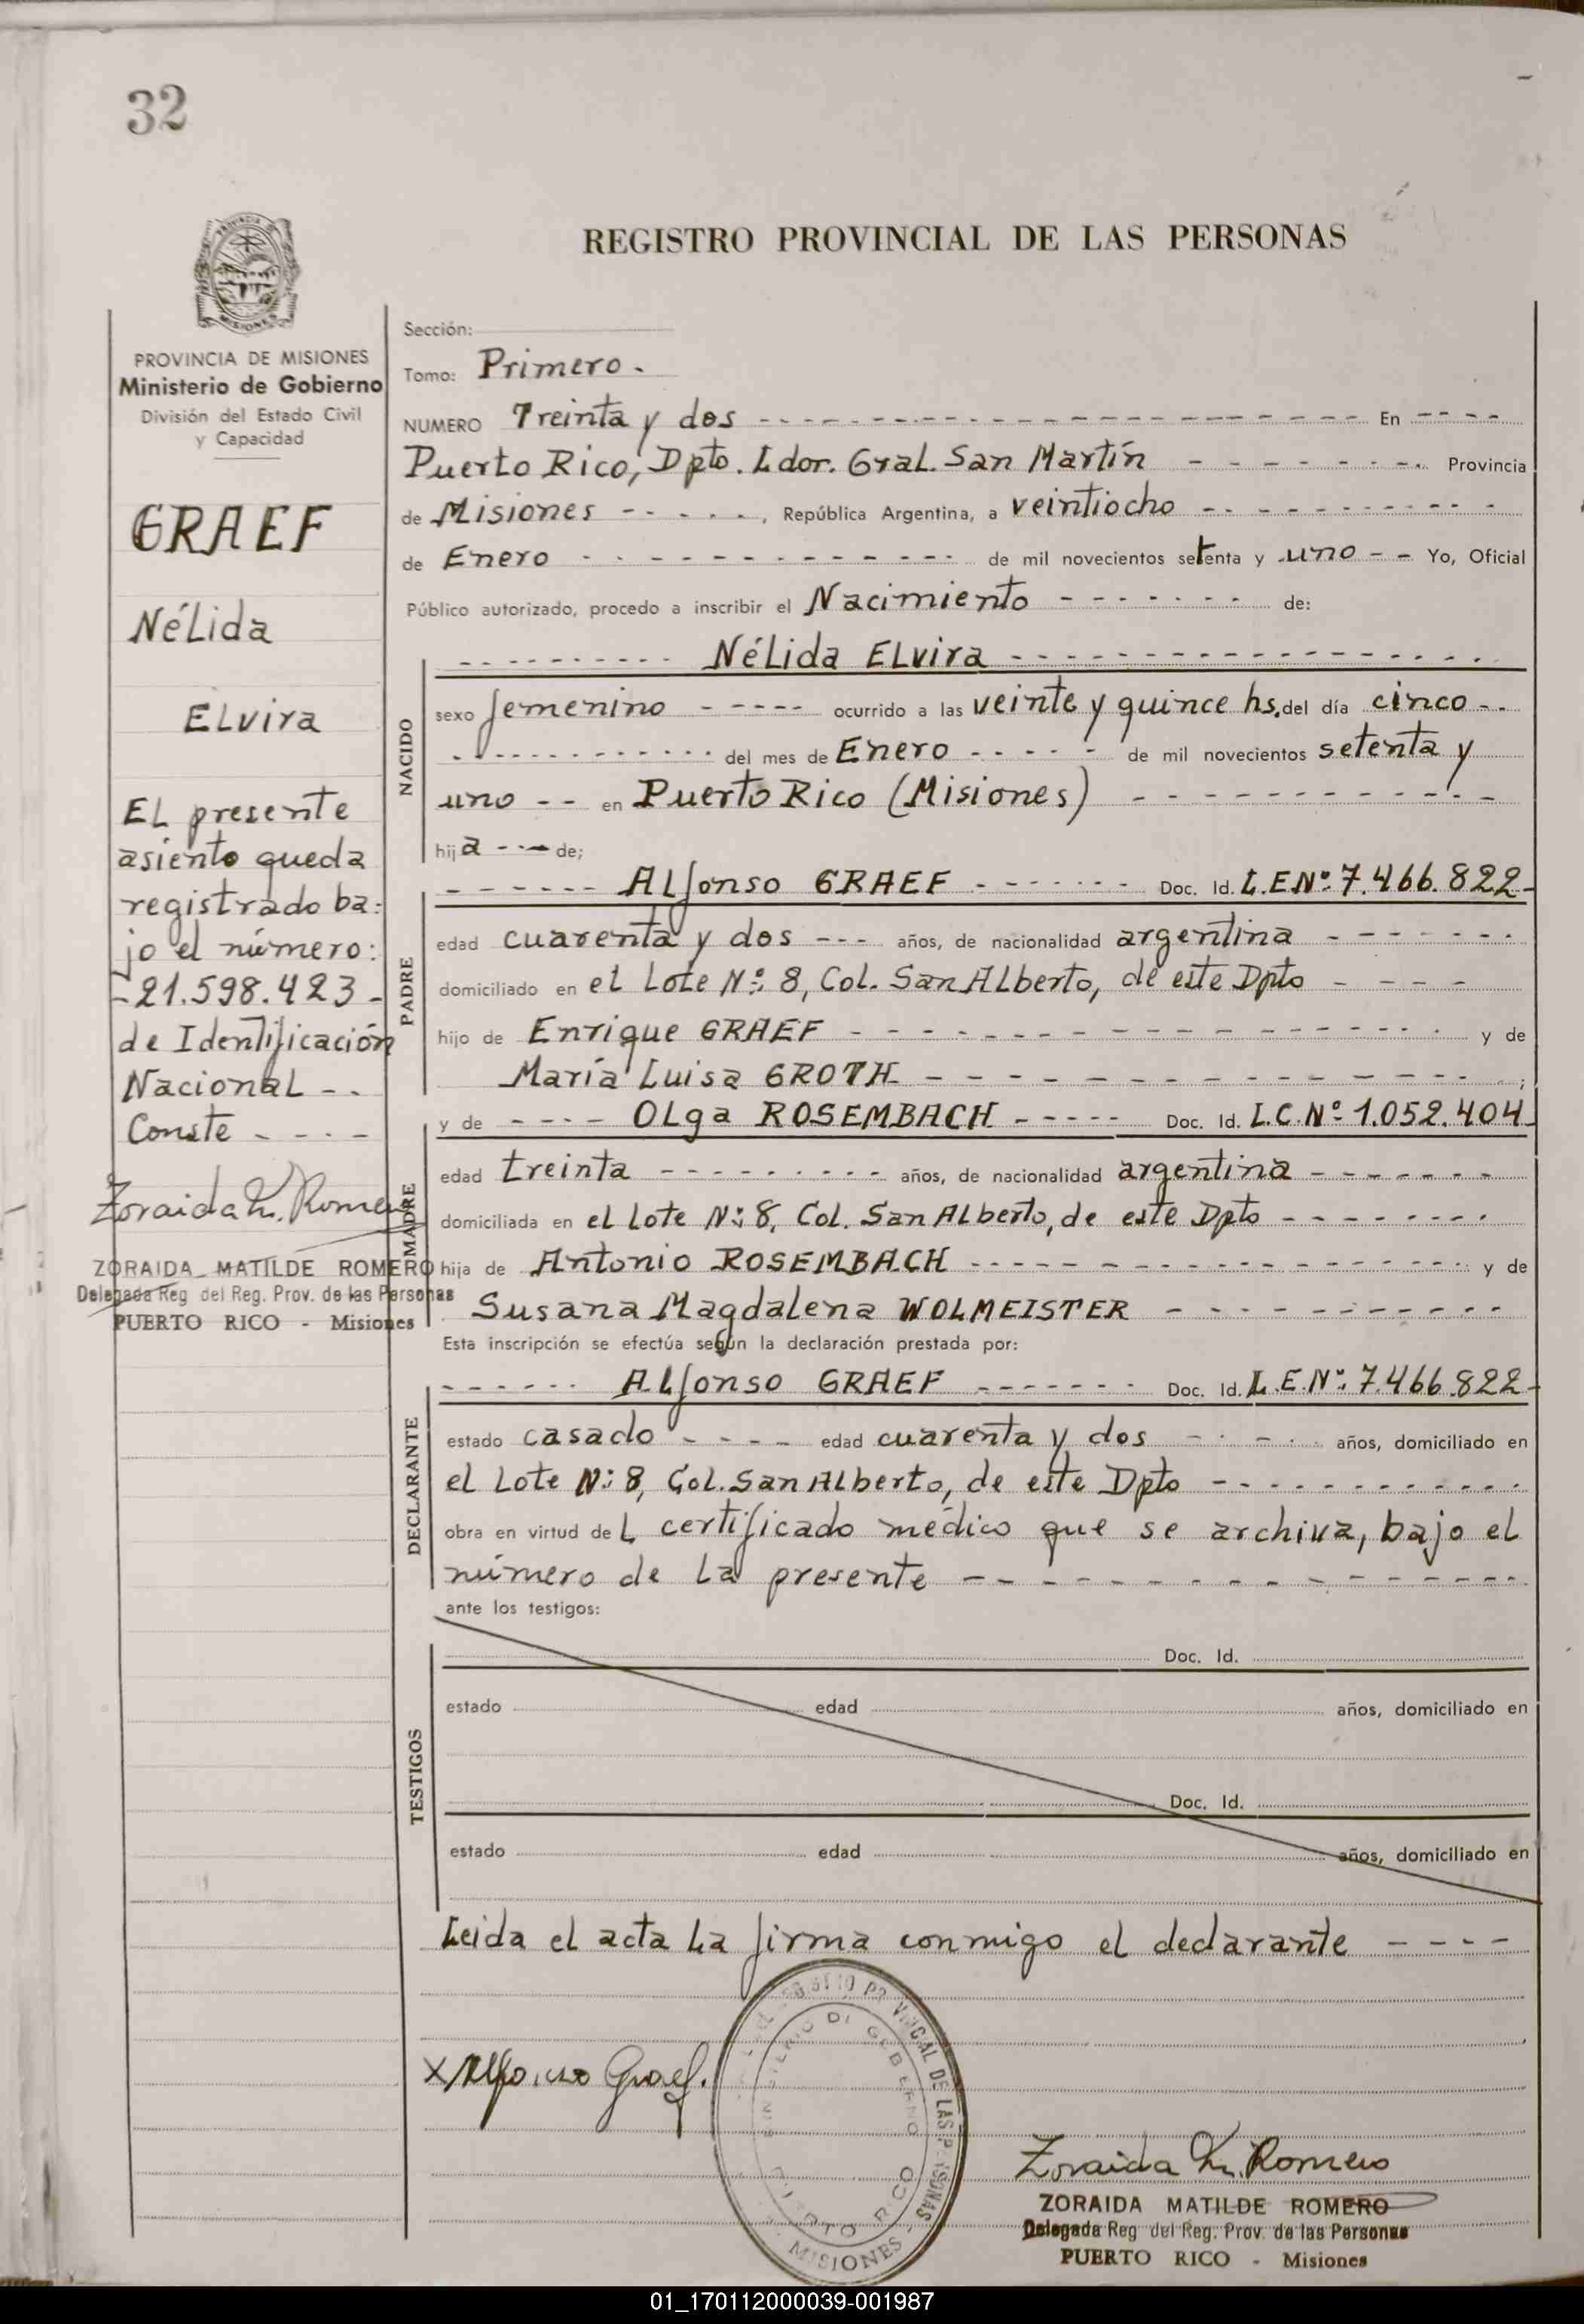 32
REGISTRO PROVINCIAL DE LAS PERSONAS
PROVINCIA DE MISIONES
Ministerio de Gobierno
División del Estado Civil
y Capacidad
GRAEF
Nélida
Elvira
El presente
asiento queda
registrado ba=
jo el número:
-21.598.423-
de Identificación
Nacional - -
Conste - - - -
Zoraida M. Romero
ZORAIDA MATILDE ROMERO
Delegada Reg del Reg. Prov. de las Personas
PUERTO RICO - Misiones
Sección:
Tomo: Primero.
NUMERO Treinta y dos - - - - En - - - -
Puerto Rico, Dpto. Ldor. Gral. San Martín - - - - Provincia
de Misiones - - - - -, República Argentina, a veintiocho - - - -
de Enero - - - - de mil novecientos setenta y uno - - Yo, Oficial
Público autorizado, procedo a inscribir el Nacimiento - - - - de:
- - - - Nélida Elvira - - - -
NACIDO
sexo femenino - - - - ocurrido a las veinte y quince hs. del día cinco - -
- - - - del mes de Enero - - - - de mil novecientos setenta y
uno - - en Puerto Rico (Misiones) - - - -
hija - - - de;
PADRE
- - - - Alfonso GRAEF - - - - Doc. Id. L.E Nº: 7.466.822-
edad cuarenta y dos - - - años, de nacionalidad argentina - - - -
domiciliado en el Lote Nº: 8, Col. San Alberto, de este Dpto - - - -
hijo de Enrique GRAEF - - - - y de
María Luisa GROTH - - - - ;
MADRE
y de - - - - Olga ROSEMBACH - - - - Doc. Id. L.C. Nº 1.052.404
edad treinta - - - - años, de nacionalidad argentina - - - -
domiciliada en el Lote Nº: 8, Col. San Alberto, de este Dpto - - - -
hija de Antonio ROSEMBACH - - - - y de
Susana Magdalena WOLMEISTER - - - -
Esta inscripción se efectúa según la declaración prestada por:
DECLARANTE
- - - - Alfonso GRAEF - - - - Doc. Id. L.E. Nº: 7.466.822-
estado casado - - - - edad cuarenta y dos - - - - años, domiciliado en
el Lote Nº: 8, Col. San Alberto, de este Dpto - - - -
obra en virtud del certificado médico que se archiva, bajo el
número de la presente - - - -
ante los testigos:
TESTIGOS
Doc. Id.
estado edad años, domiciliado en
Doc. Id.
estado edad años, domiciliado en
Leida el acta la firma conmigo el declarante - - - -
X Alfonso Graef.
MINISTERIO DE GOBIERNO
PUERTO RICO
MISIONES
Zoraida M. Romero
ZORAIDA MATILDE ROMERO
Delegada Reg del Reg. Prov. de las Personas
PUERTO RICO - Misiones
01_170112000039-001987